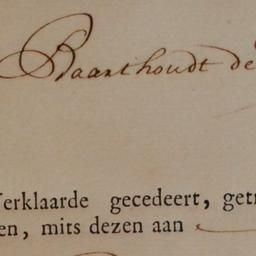 Baanthoudt de
Verklaarde gecedeert, getr
en, mits dezen aan